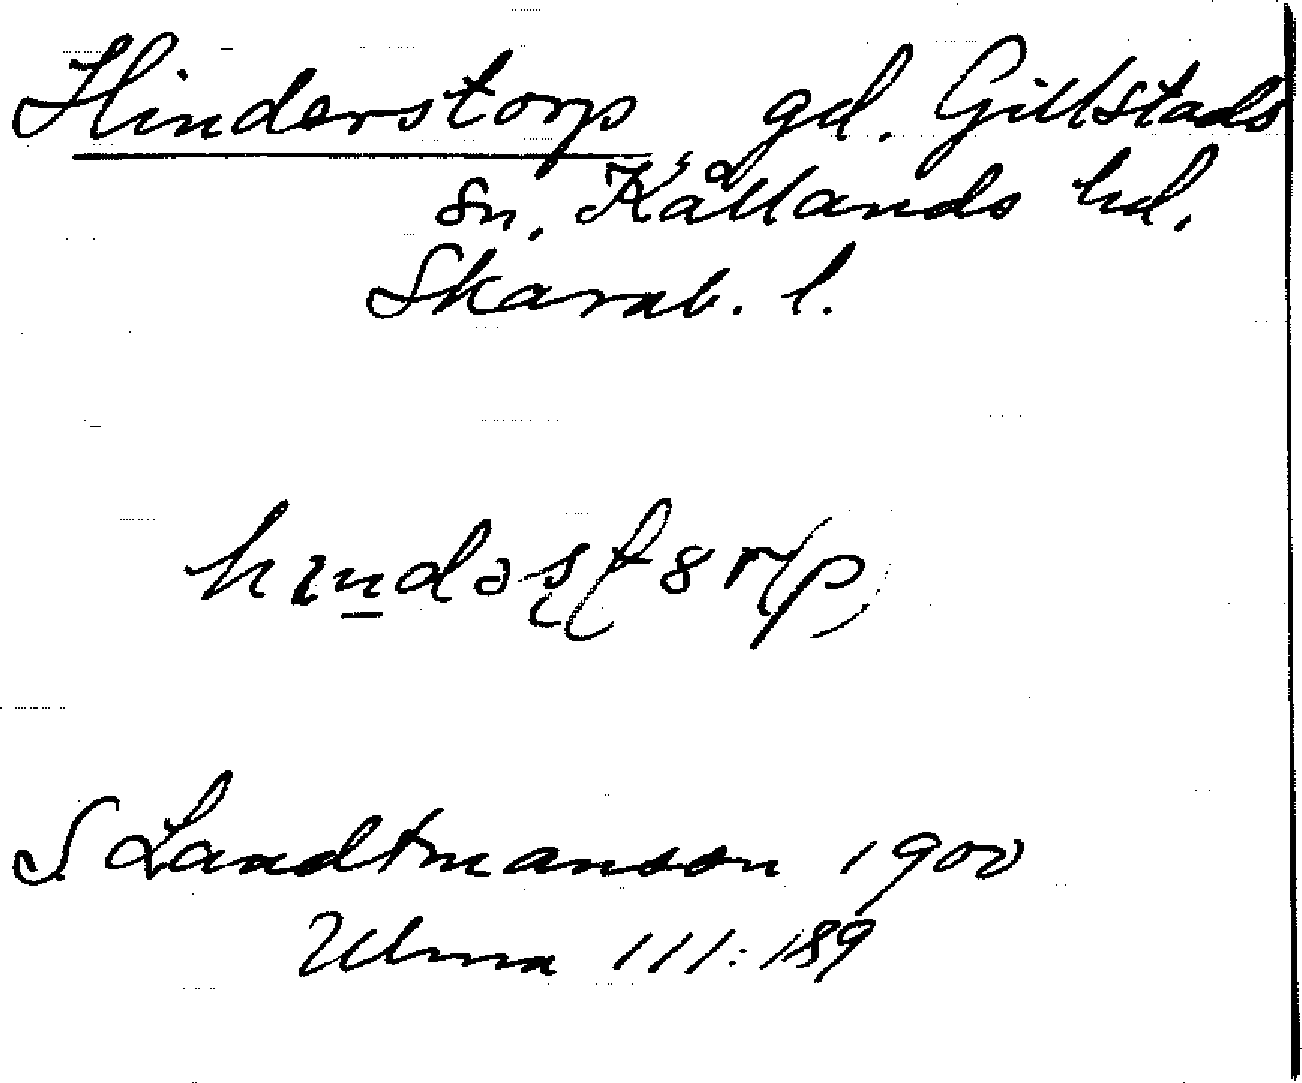 Hinderstorp, gd. Gillstads
sn, Kållands hd.
Skarab. l.
S Landtmanson 1900
Ulma 111:189